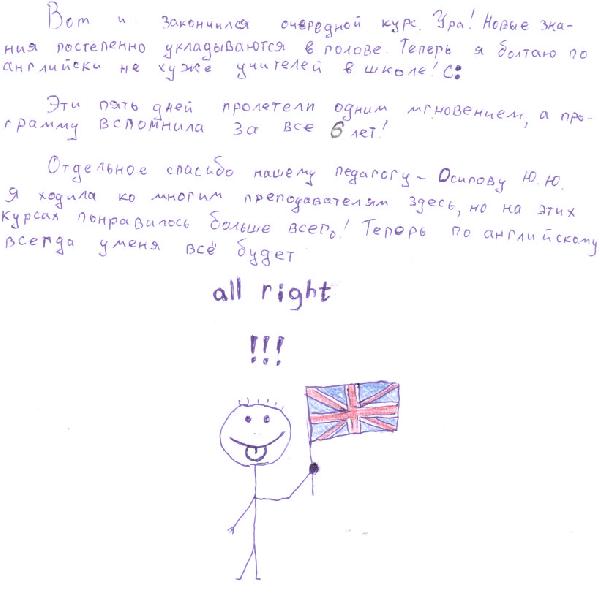 Вот и закончился очередной курс. Ура! Новые зна-
ния постепенно укладываются в голове. Теперь я болтаю по
английски не хуже учителей в школе! С:
Эти пять дней пролетели одним мгновением, а про-
грамму вспомнила за все 6 лет!
Отдельное спасибо нашему педагогу - Осипову Ю.Ю.
Я ходила ко многим преподавателям здесь, но на этих
курсах понравилось больше всего! Теперь по английскому
всегда у меня всё будет
all right
!!!